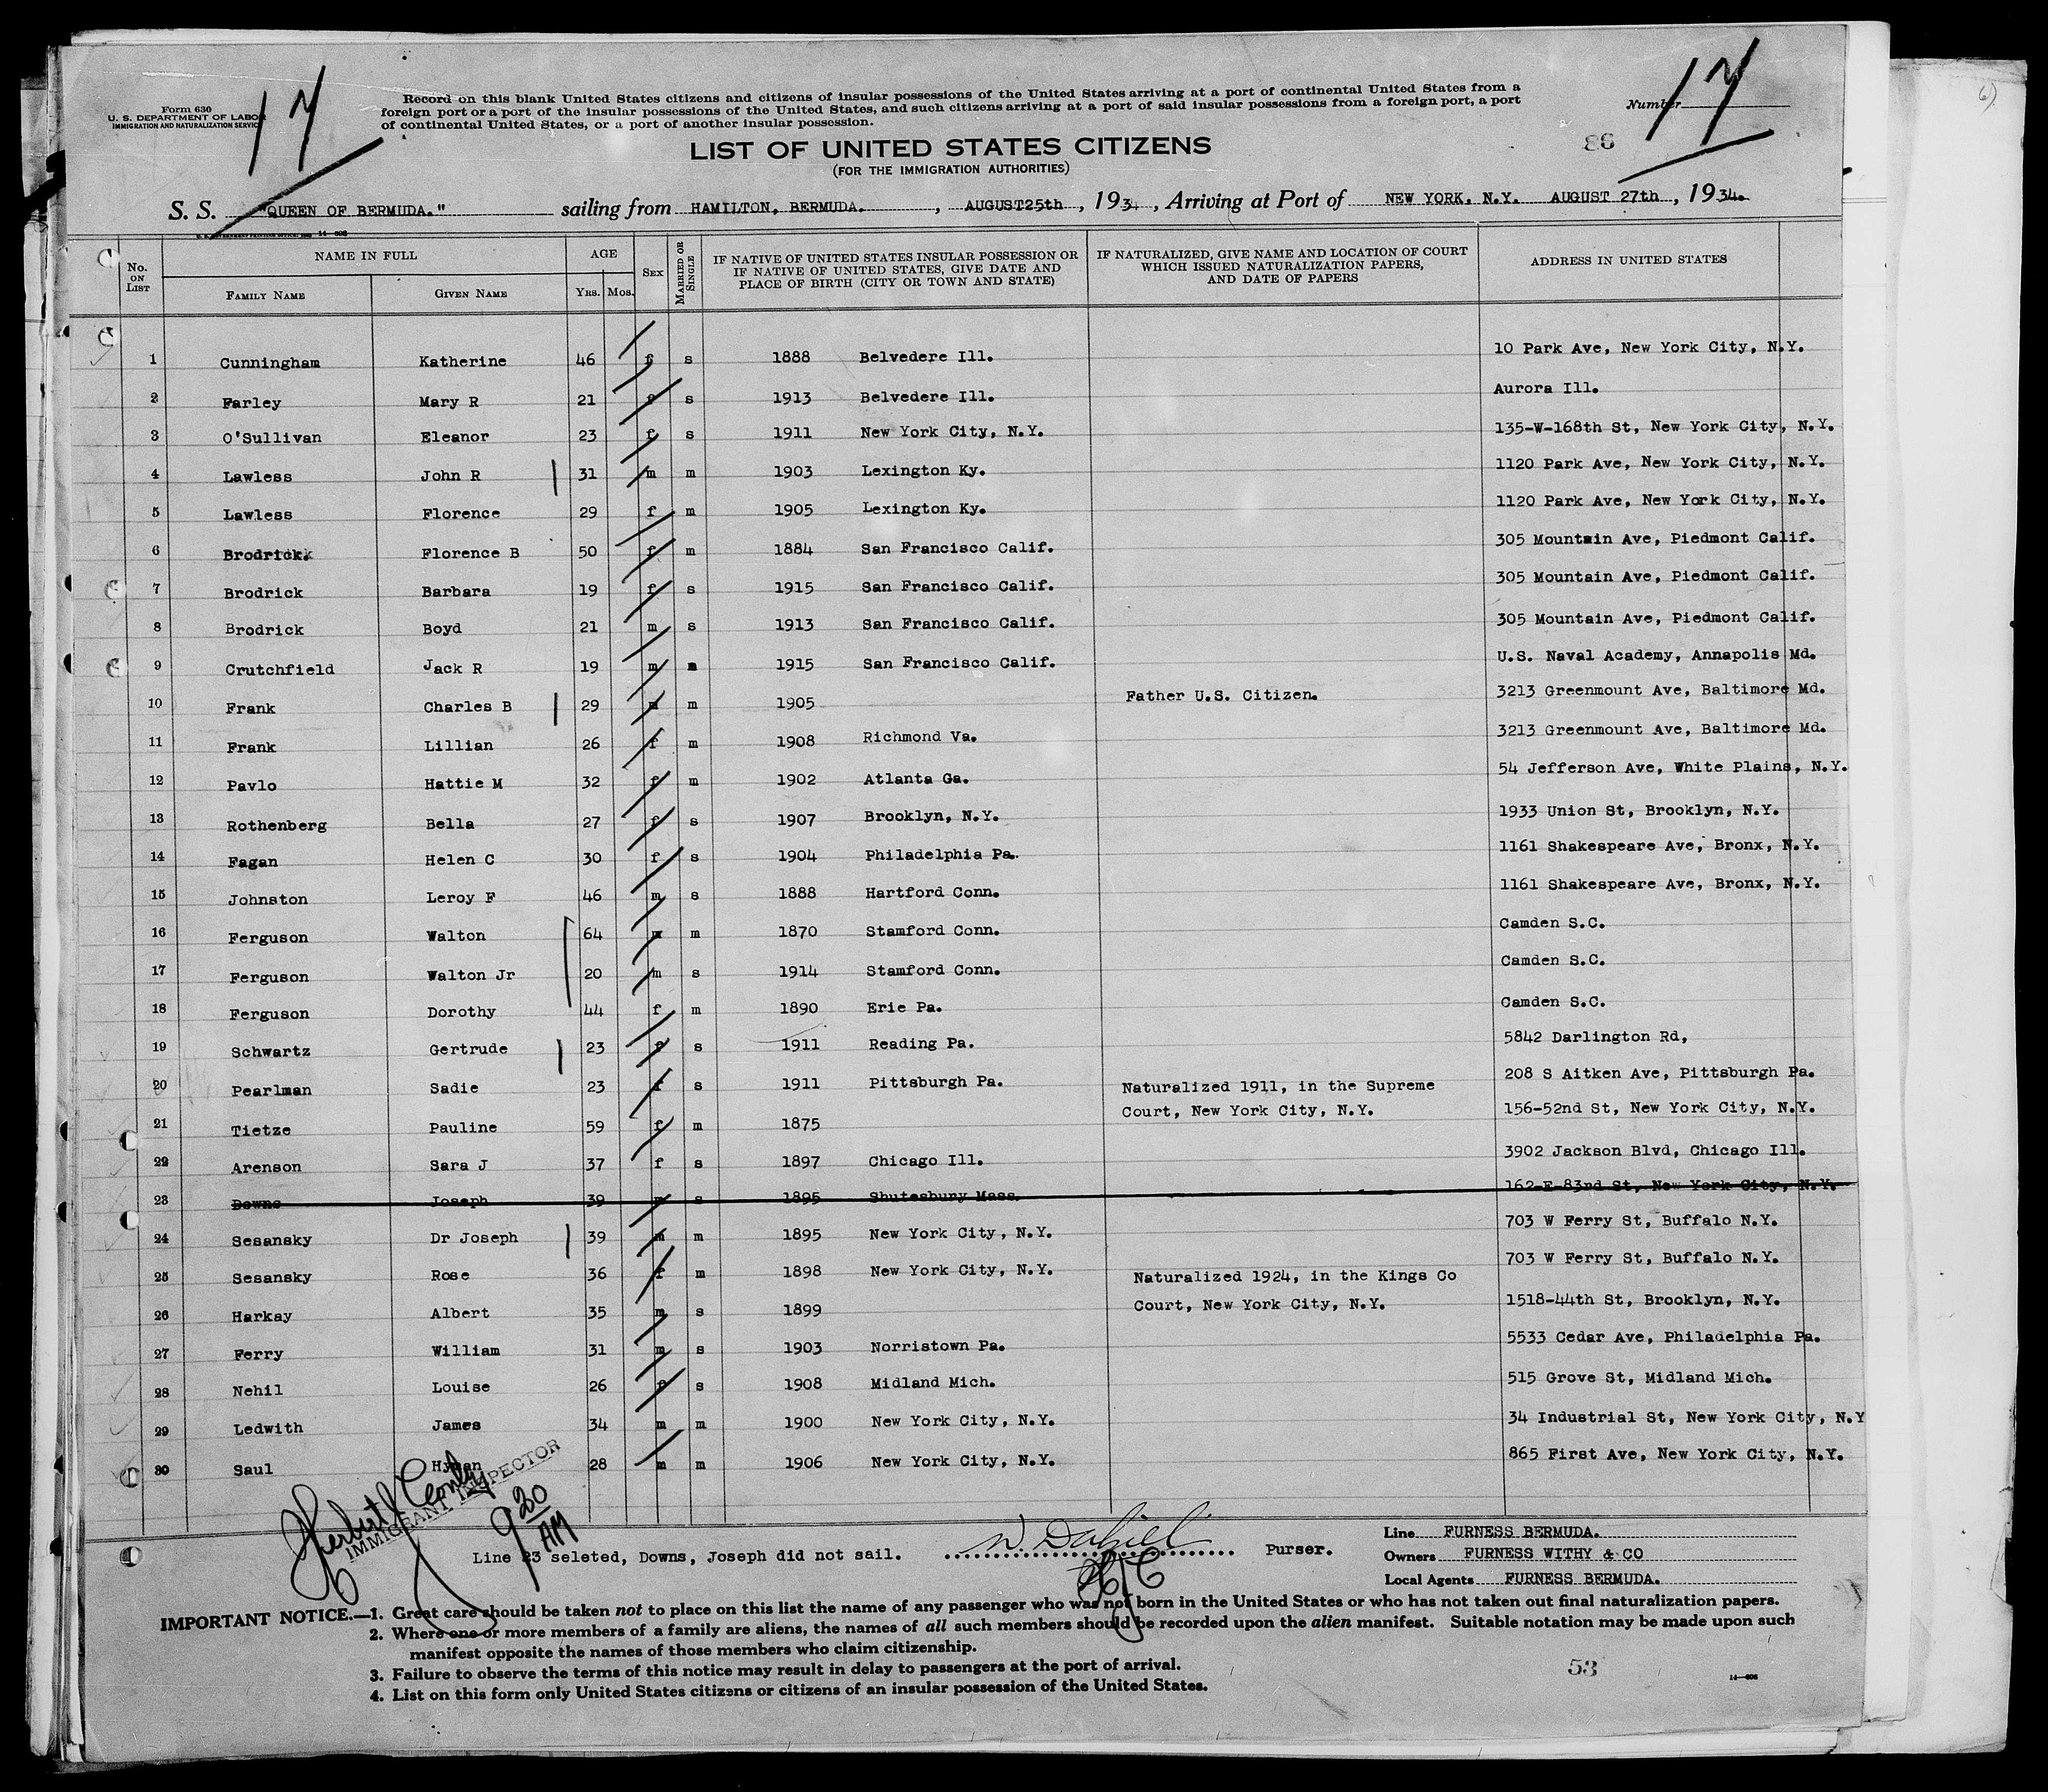 17
17
Form 630
U. S. DEPARTMENT OF LABOR
IMMIGRATION AND NATURALIZATION SERVICE
Record on this blank United States citizens and citizens of insular possessions of the United States arriving at a port of continental United States from a
foreign port or a port of the insular possessions of the United States, and such citizens arriving at a port of said insular possessions from a foreign port, a port
of continental United States, or a port of another insular possession.
Number
86
LIST OF UNITED STATES CITIZENS
(FOR THE IMMIGRATION AUTHORITIES)
S. S. "QUEEN OF BERMUDA." sailing from HAMILTON, BERMUDA. , AUGUST25th , 1934 , Arriving at Port of NEW YORK. N.Y. AUGUST 27th , 1934.
No. ON LIST NAME IN FULL FAMILY NAME GIVEN NAME AGE YRS. MOS. SEX MARRIED OR SINGLE IF NATIVE OF UNITED STATES INSULAR POSSESSION OR IF NATIVE OF UNITED STATES, GIVE DATE AND PLACE OF BIRTH (CITY OR TOWN AND STATE) IF NATURALIZED, GIVE NAME AND LOCATION OF COURT WHICH ISSUED NATURALIZATION PAPERS, AND DATE OF PAPERS ADDRESS IN UNITED STATES
1 Cunningham Katherine 46 f s 1888 Belvedere Ill. 10 Park Ave, New York City, N.Y.
2 Farley Mary R 21 f s 1913 Belvedere Ill. Aurora Ill.
3 O'Sullivan Eleanor 23 f s 1911 New York City, N.Y. 135-W-168th St, New York City, N.Y.
4 Lawless John R 31 m m 1903 Lexington Ky. 1120 Park Ave, New York City, N.Y.
5 Lawless Florence 29 f m 1905 Lexington Ky. 1120 Park Ave, New York City, N.Y.
6 Brodrick. Florence B 50 f m 1884 San Francisco Calif. 305 Mountain Ave, Piedmont Calif.
7 Brodrick Barbara 19 f s 1915 San Francisco Calif. 305 Mountain Ave, Piedmont Calif.
8 Brodrick Boyd 21 m s 1913 San Francisco Calif. 305 Mountain Ave, Piedmont Calif.
9 Crutchfield Jack R 19 m 1915 San Francisco Calif. U.S. Naval Academy, Annapolis Md.
10 Frank Charles B 29 m m 1905 Father U.S. Citizen. 3213 Greenmount Ave, Baltimore Md.
11 Frank Lillian 26 f m 1908 Richmond Va. 3213 Greenmount Ave, Baltimore Md.
12 Pavlo Hattie M 32 f m 1902 Atlanta Ga. 54 Jefferson Ave, White Plains, N.Y.
13 Rothenberg Bella 27 f s 1907 Brooklyn, N.Y. 1933 Union St, Brooklyn, N.Y.
14 Fagan Helen C 30 f s 1904 Philadelphia Pa. 1161 Shakespeare Ave, Bronx, N.Y.
15 Johnston Leroy F 46 m s 1888 Hartford Conn. 1161 Shakespeare Ave, Bronx, N.Y.
16 Ferguson Walton 64 m m 1870 Stamford Conn. Camden S.C.
17 Ferguson Walton Jr 20 m s 1914 Stamford Conn. Camden S.C.
18 Ferguson Dorothy 44 f m 1890 Erie Pa. Camden S.C.
19 Schwartz Gertrude 23 f s 1911 Reading Pa. 5842 Darlington Rd,
20 Pearlman Sadie 23 f s 1911 Pittsburgh Pa. 208 S Aitken Ave, Pittsburgh Pa.
Naturalized 1911, in the Supreme
Court, New York City, N.Y.
21 Tietze Pauline 59 f m 1875 156-52nd St, New York City, N.Y.
22 Arenson Sara J 37 f s 1897 Chicago Ill. 3902 Jackson Blvd, Chicago Ill.
23 Downs Joseph 39 m s 1895 Shutesbury Mass. 162-E-83nd St, New York City, N.Y.
24 Sesansky Dr Joseph 39 m m 1895 New York City, N.Y. 703 W Ferry St, Buffalo N.Y.
25 Sesansky Rose 36 f m 1898 New York City, N.Y. 703 W Ferry St, Buffalo N.Y.
Naturalized 1924, in the Kings Co
Court, New York City, N.Y.
26 Harkay Albert 35 m s 1899 1518-44th St, Brooklyn, N.Y.
27 Ferry William 31 m s 1903 Norristown Pa. 5533 Cedar Ave, Philadelphia Pa.
28 Nehil Louise 26 f s 1908 Midland Mich. 515 Grove St, Midland Mich.
29 Ledwith James 34 m m 1900 New York City, N.Y. 34 Industrial St, New York City, N.Y
30 Saul Hyman 28 m m 1906 New York City, N.Y. 865 First Ave, New York City, N.Y.
Herbert
IMMIGRANT INSPECTOR
9 20 AM
Line 23 seleted, Downs, Joseph did not sail. Purser.
Line FURNESS BERMUDA.
Owners FURNESS WITHY & CO
Local Agents FURNESS BERMUDA.
IMPORTANT NOTICE.—1. Great care should be taken not to place on this list the name of any passenger who was not born in the United States or who has not taken out final naturalization papers.
2. Where one or more members of a family are aliens, the names of all such members should be recorded upon the alien manifest. Suitable notation may be made upon such
manifest opposite the names of those members who claim citizenship.
3. Failure to observe the terms of this notice may result in delay to passengers at the port of arrival.
4. List on this form only United States citizens or citizens of an insular possession of the United States.
53
14—898